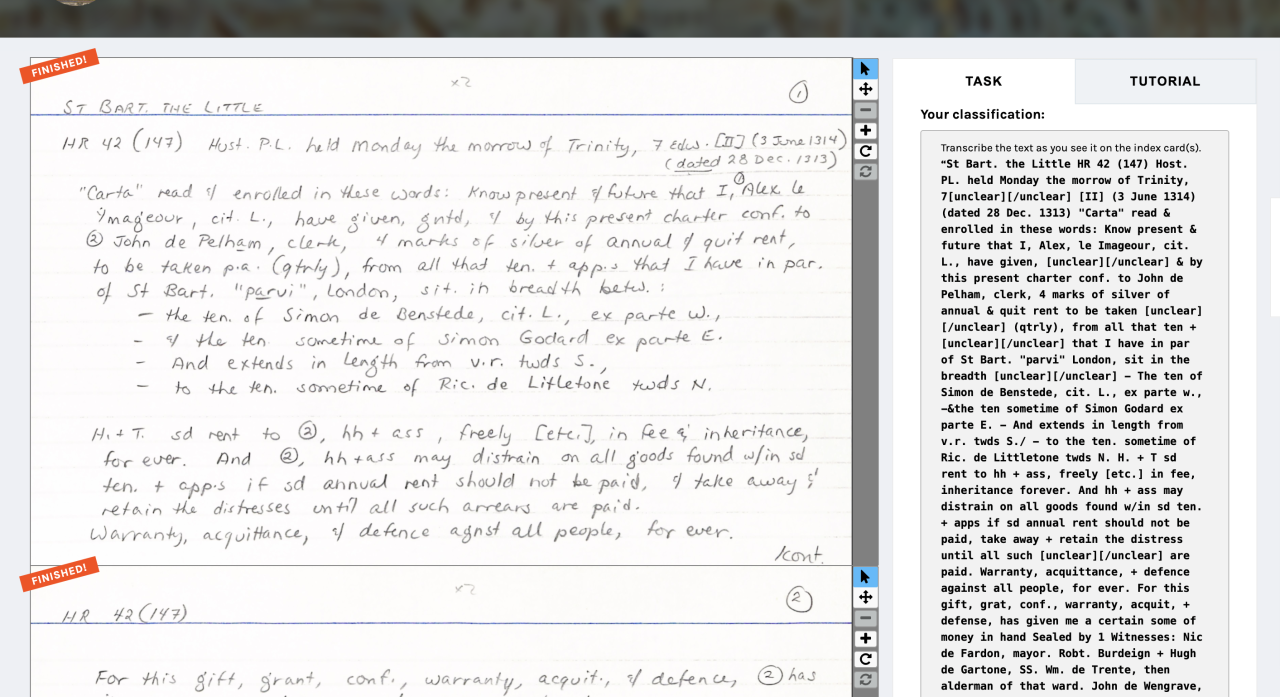 FINISHED!
x2
1
ST BART. THE LITTLE
HR 42 (147) Hust. P.L. held Monday the morrow of Trinity, 7 Edw. [II] (3 June 1314)
(dated 28 Dec. 1313)
"Carta" read & enrolled in these words: Know present & future that I, ① Alex. le
Ymageour, cit. L., have given, gntd, & by this present charter conf. to
② John de Pelham, clerk, 4 marks of silver of annual & quit rent,
to be taken p.a. (qtrly), from all that ten. + app.s that I have in par.
of St Bart. "parvi", London, sit. in breadth betw. :
– the ten. of Simon de Benstede, cit. L., ex parte w.,
- & the ten. sometime of Simon Godard ex parte E.
- And extends in length from v.r. twds S.,
- to the ten. sometime of Ric. de Litletone twds N.
H. + T. sd rent to ②, hh + ass, freely [etc.], in fee & inheritance,
for ever. And ②, hh + ass may distrain on all goods found w/in sd
ten. + app.s if sd annual rent should not be paid, & take away &
retain the distresses until all such arrears are paid.
Warranty, acquittance, & defence agnst all people, for ever.
/cont.
FINISHED!
x2
2
HR 42 (147)
For this gift, grant, conf., warranty, acquit., & defence, ② has
TASK
TUTORIAL
Your classification:
Transcribe the text as you see it on the index card(s).
“St Bart. the Little HR 42 (147) Host.
PL. held Monday the morrow of Trinity,
7[unclear][/unclear] [II] (3 June 1314)
(dated 28 Dec. 1313) "Carta" read &
enrolled in these words: Know present &
future that I, Alex, le Imageour, cit.
L., have given, [unclear][/unclear] & by
this present charter conf. to John de
Pelham, clerk, 4 marks of silver of
annual & quit rent to be taken [unclear]
[/unclear] (qtrly), from all that ten +
[unclear][/unclear] that I have in par
of St Bart. "parvi" London, sit in the
breadth [unclear][/unclear] – The ten of
Simon de Benstede, cit. L., ex parte w.,
–&the ten sometime of Simon Godard ex
parte E. – And extends in length from
v.r. twds S./ – to the ten. sometime of
Ric. de Littletone twds N. H. + T sd
rent to hh + ass, freely [etc.] in fee,
inheritance forever. And hh + ass may
distrain on all goods found w/in sd ten.
+ apps if sd annual rent should not be
paid, take away + retain the distress
until all such [unclear][/unclear] are
paid. Warranty, acquittance, + defence
against all people, for ever. For this
gift, grat, conf., warranty, acquit, +
defense, has given me a certain some of
money in hand Sealed by 1 Witnesses: Nic
de Fardon, mayor. Robt. Burdeign + Hugh
de Gartone, SS. Wm. de Trente, then
alderman of that ward. John de Wengrave,